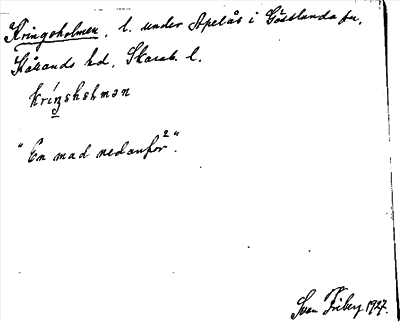 Kringsholmen, l. under Apelås i Götlunda sn,
Kåkinds hd, Skarab. l.
kríŋshɷlmən
"En mad nedanför²".
Sven Friberg 1927.